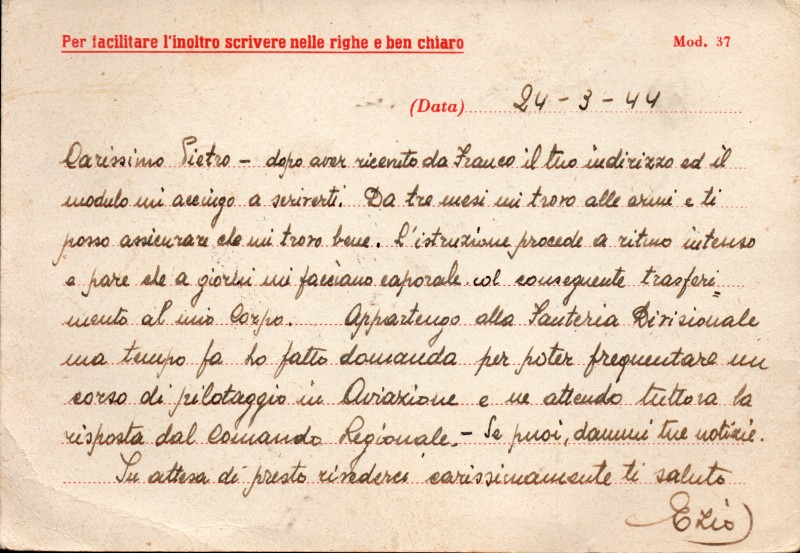 Per facilitare l'inoltro scrivere nelle righe e ben chiaro
Mod. 37
(Data) 24-3-44
Carissimo Pietro - dopo aver ricevuto da Franco il tuo indirizzo ed il
modulo mi accingo a scriverti. Da tre mesi mi trovo alle armi e ti
posso assicurare che mi trovo bene. L'istruzione procede a ritmo intenso
e pare che a giorni mi facciano caporale col conseguente trasferi=
mento al mio Corpo. Appartengo alla Fanteria Divisionale
ma tempo fa ho fatto domanda per poter frequentare un
corso di pilotaggio in Aviazione e ne attendo tuttora la
risposta dal Comando Regionale. - Se puoi, dammi tue notizie.
In attesa di presto rivederci carissimamente ti saluto
Ezio